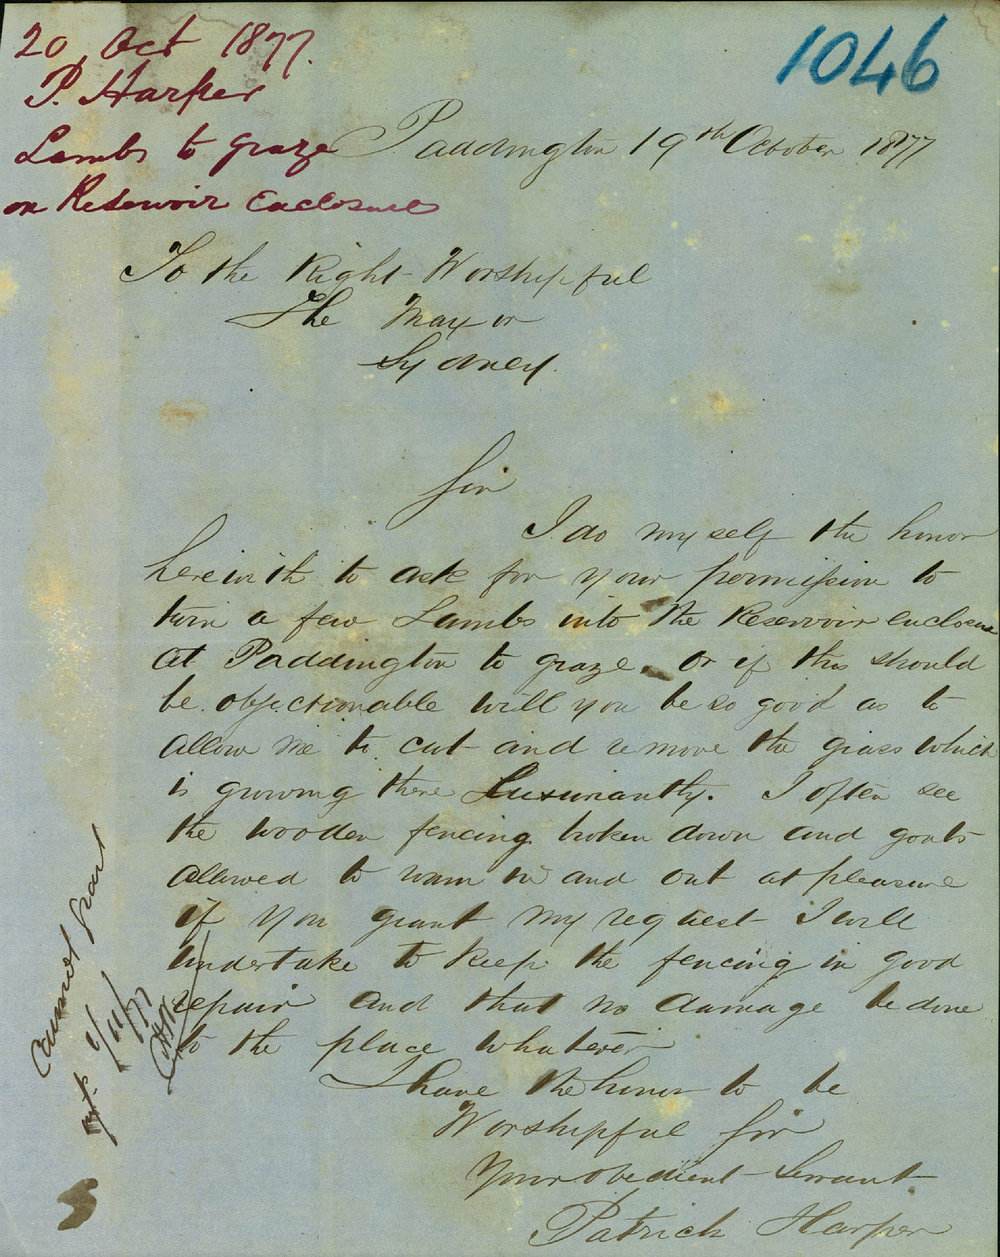 20 Oct 1877.
P. Harper
Lambs to graze
on Reservoir Enclosure
1046
Paddington 19th October 1877
To the Right Worshipful
The Mayor
Sydney.
Sir
I do myself the honor
herewith to ask for your permission to
turn a few Lambs into the Reservoir enclosure
at Paddington to graze. or if this should
be objectionable will you be so good as to
allow me to cut and remove the grass which
is growing there Luxuriantly. I often see
the wooden fencing broken down and goats
allowed to roam in and out at pleasure
if you grant my request I will
undertake to keep the fencing in good
repair and that no damage be done
to the place whatever
I have the honor to be
Worshipful Sir
Your obedient Servant
Patrick Harper
Cannot grant
1/11/77